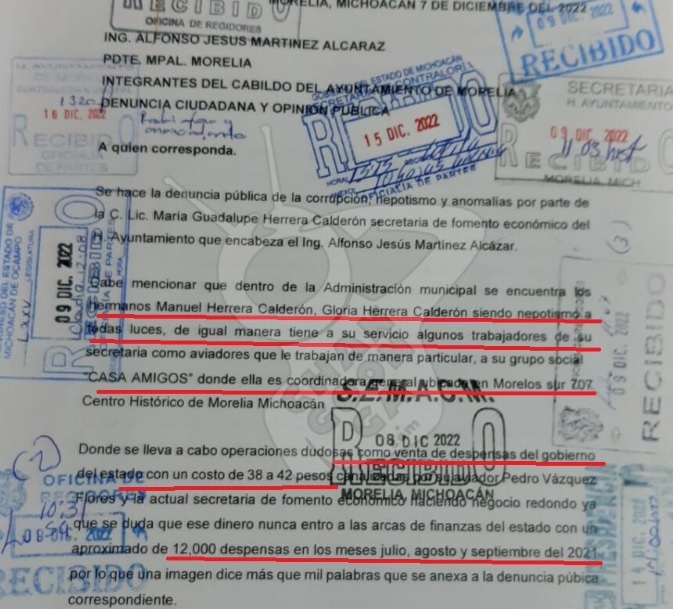 RECIBIDO
OFICINA DE REGIDORES
MORELIA, MICHOACAN 7 DE DICIEMBRE DEL 2022
09 DIC. 2022
RECIBIDO
ING. ALFONSO JESUS MARTINEZ ALCARAZ
PDTE. MPAL. MORELIA
INTEGRANTES DEL CABILDO DEL AYUNTAMIENTO DE MORELIA
DENUNCIA CIUDADANA Y OPINIÓN PÚBLICA
16 DIC. 2022
RECIBIDO
OFICIALIA
DE PARTES
15 DIC. 2022
OFICIALIA DE PARTES
SECRETARIA
H. AYUNTAMIENTO
09 DIC. 2022
RECIBIDO
MORELIA, MICH
A quien corresponda.
Se hace la denuncia pública de la corrupción, nepotismo y anomalías por parte de
la C. Lic. María Guadalupe Herrera Calderón secretaria de fomento económico del
Ayuntamiento que encabeza el Ing. Alfonso Jesús Martínez Alcázar.
Cabe mencionar que dentro de la Administración municipal se encuentra los
hermanos Manuel Herrera Calderón, Gloria Herrera Calderón siendo nepotismo a
todas luces, de igual manera tiene a su servicio algunos trabajadores de su
secretaria como aviadores que le trabajan de manera particular, a su grupo social
"CASA AMIGOS" donde ella es coordinadora general ubicada en Morelos sur 707
Centro Histórico de Morelia Michoacán
09 DIC. 2022
09 DIC. 2022
RECIBIDO
S.E.M.A.C.M.
08 DIC 2022
RECIBIDO
MORELIA, MICHOACÁN
Donde se lleva a cabo operaciones dudosas como venta de despensas del gobierno
del estado con un costo de 38 a 42 pesos canalizadas por su aviador Pedro Vázquez
Flores y la actual secretaria de fomento económico haciendo negocio redondo ya
que se duda que ese dinero nunca entro a las arcas de finanzas del estado con un
aproximado de 12,000 despensas en los meses julio, agosto y septiembre del 2021
por lo que una imagen dice más que mil palabras que se anexa a la denuncia púbica
correspondiente.
OFICINA DE
REGIDORES
10:31
RECIBIDO